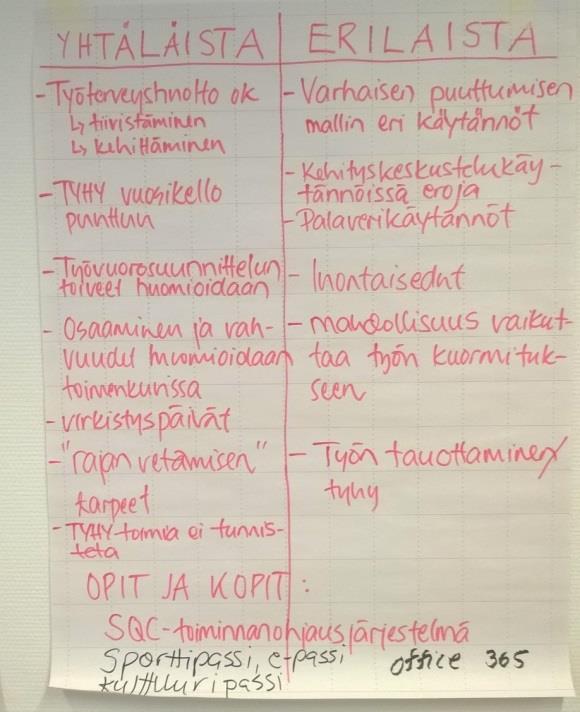 YHTÄLÄISTÄ
- Työterveyshuolto ok
↳ tiivistäminen
↳ kehittäminen
- TYHY vuosikello
puuttuu
- Työvuorosuunnittelun
toiveet huomioidaan
- Osaaminen ja vah-
vuudet huomioidaan
toimenkuvissa
- virkistyspäivät
- "rajan vetämisen"
tarpeet
- TYHY-toimia ei tunnis-
teta
ERILAISTA
- Varhaisen puuttumisen
mallin eri käytännöt
- Kehityskeskustelukäy-
tännöissä eroja
- Palaverikäytännöt
- luontaisedut
- mahdollisuus vaikut-
taa työn kuormituk-
seen
- Työn tauottaminen/
tyhy
OPIT JA KOPIT :
SQC-toiminnanohjausjärjestelmä
Sporttipassi, e-passi office 365
kulttuuripassi